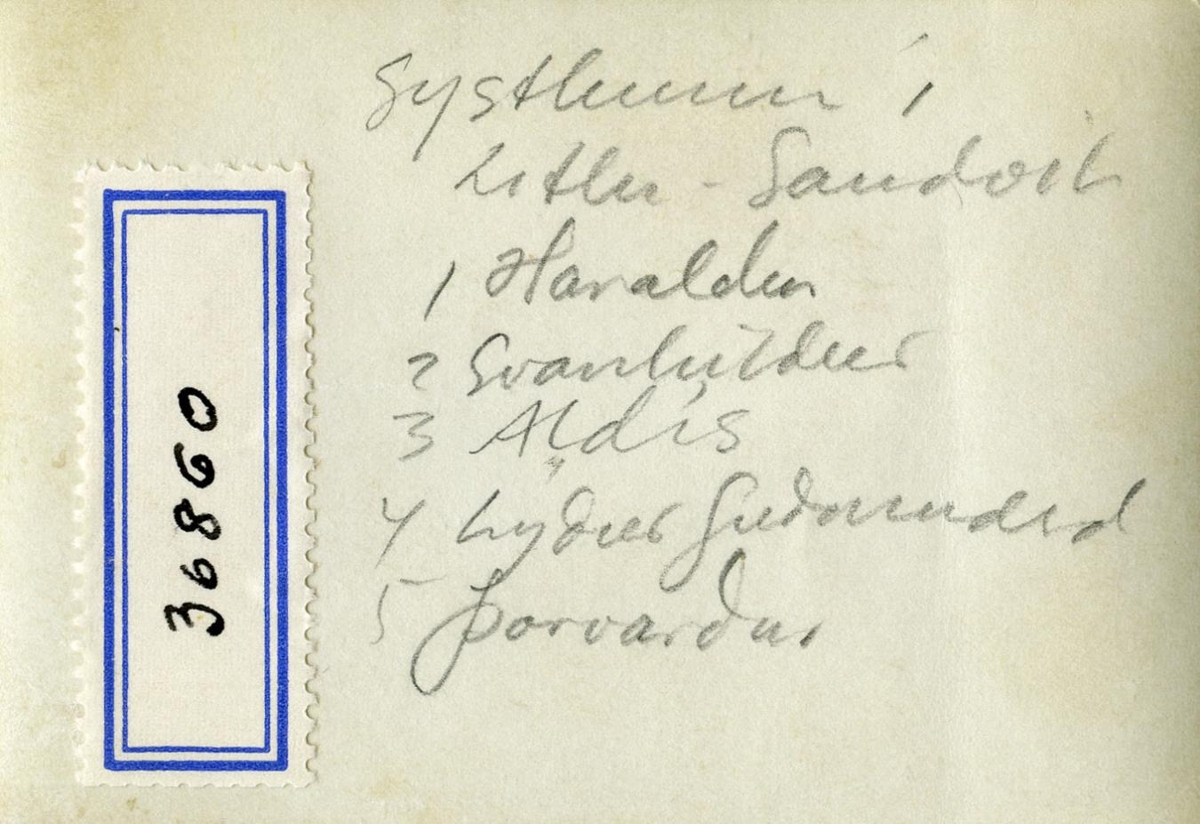 Systkinin í
Litlu-Sandvík
1 Haraldur
2 Svanhildur
3 Aldís
4 Lýður Guðmundss
5 Þorvarður
36860